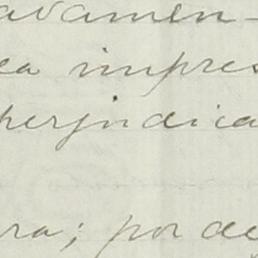 avamen-
ea impres
perjudica
ra; por de